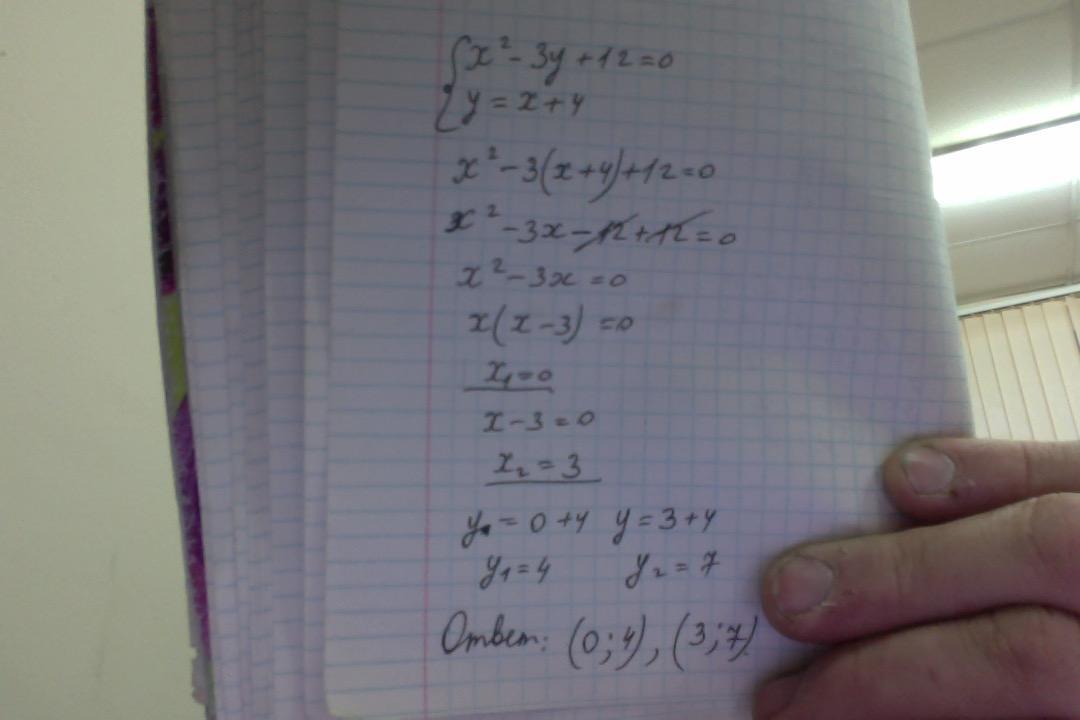 {x² - 3y + 12 = 0
y = x + 4
x² - 3(x + 4) + 12 = 0
x² - 3x - 12 + 12 = 0
x² - 3x = 0
x(x - 3) = 0
x₁ = 0
x - 3 = 0
x₂ = 3
y = 0 + 4 y = 3 + 4
y₁ = 4 y₂ = 7
Ответ: (0; 4), (3; 7).